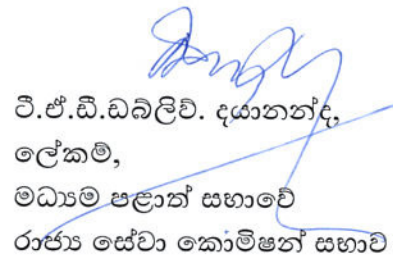 ටී.ඒ.ඩී.ඩබ්ලිව්. දයානන්ද,
ලේකම්,
මධ්‍යම පළාත් සභාවේ
රාජ්‍ය සේවා කොමිෂන් සභාව